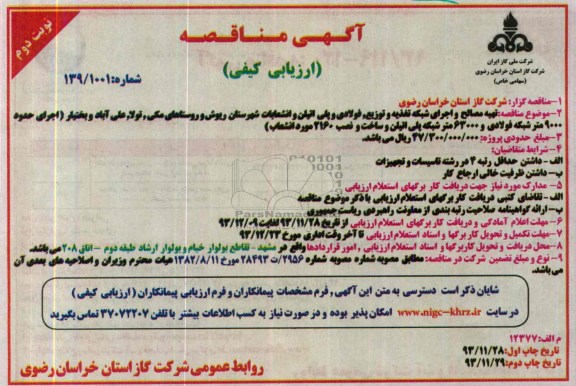 نوبت دوم
آگهی مناقصه
(ارزیابی کیفی)
شماره: ۱۳۹/۱۰۰۱
شرکت ملی گاز ایران
شرکت گاز استان خراسان رضوی
(سهامی خاص)
۱- مناقصه گزار: شرکت گاز استان خراسان رضوی
۲- موضوع مناقصه: تهیه مصالح و اجرای شبکه تغذیه و توزیع، فولادی و پلی اتیلن و انشعابات شهرستان ریوش و روستاهای مکی، تولا، علی آباد و بختیار (اجرای حدود
۹۰۰۰ متر شبکه فولادی و ۶۳۰۰۰ متر شبکه پلی اتیلن و ساخت و نصب ۲۱۶۰ مورد انشعاب)
۳- مبلغ حدودی پروژه: ۴۷/۳۰۰/۰۰۰/۰۰۰ ریال می باشد.
۴- شرایط متقاضیان:
الف - داشتن حداقل رتبه ۴ در رشته تاسیسات و تجهیزات
ب- داشتن ظرفیت خالی ارجاع کار
۵- مدارک مورد نیاز جهت دریافت کاربرگهای استعلام ارزیابی
الف - تقاضای کتبی دریافت کاربرگهای استعلام ارزیابی با ذکر موضوع مناقصه
ب- ارائه گواهینامه صلاحیت رتبه بندی از معاونت راهبردی ریاست جمهوری
۶- مهلت اعلام آمادگی و دریافت کاربرگهای استعلام ارزیابی از تاریخ ۹۳/۱۱/۲۸ لغایت ۹۳/۱۲/۰۹
۷- مهلت تکمیل و تحویل کاربرگها و اسناد استعلام ارزیابی تا آخر وقت اداری مورخ ۹۳/۱۲/۲۳
۸- محل دریافت و تحویل کاربرگها و اسناد استعلام ارزیابی، امور قراردادها واقع در مشهد - تقاطع بولوار خیام و بولوار ارشاد طبقه دوم - اتاق ۲۰۸ می باشد.
۹- نوع و مبلغ تضمین شرکت در مناقصه: مطابق مصوبه شماره مصوبه شماره ۲۹۵۶/ت ۲۸۴۹۳ مورخ ۱۳۸۲/۸/۱۱ هیات محترم وزیران و اصلاحیه های بعدی آن
می باشد.
شایان ذکر است دسترسی به متن این آگهی، فرم مشخصات پیمانکاران و فرم ارزیابی پیمانکاران (ارزیابی کیفی)
در سایت www.nigc-khrz.ir امکان پذیر بوده و در صورت نیاز به کسب اطلاعات بیشتر با تلفن ۳۷۰۷۲۲۰۷ تماس بگیرید
م الف: ۱۲۳۷۷
تاریخ چاپ اول: ۹۳/۱۱/۲۸
تاریخ چاپ دوم: ۹۳/۱۱/۲۹
روابط عمومی شرکت گاز استان خراسان رضوی